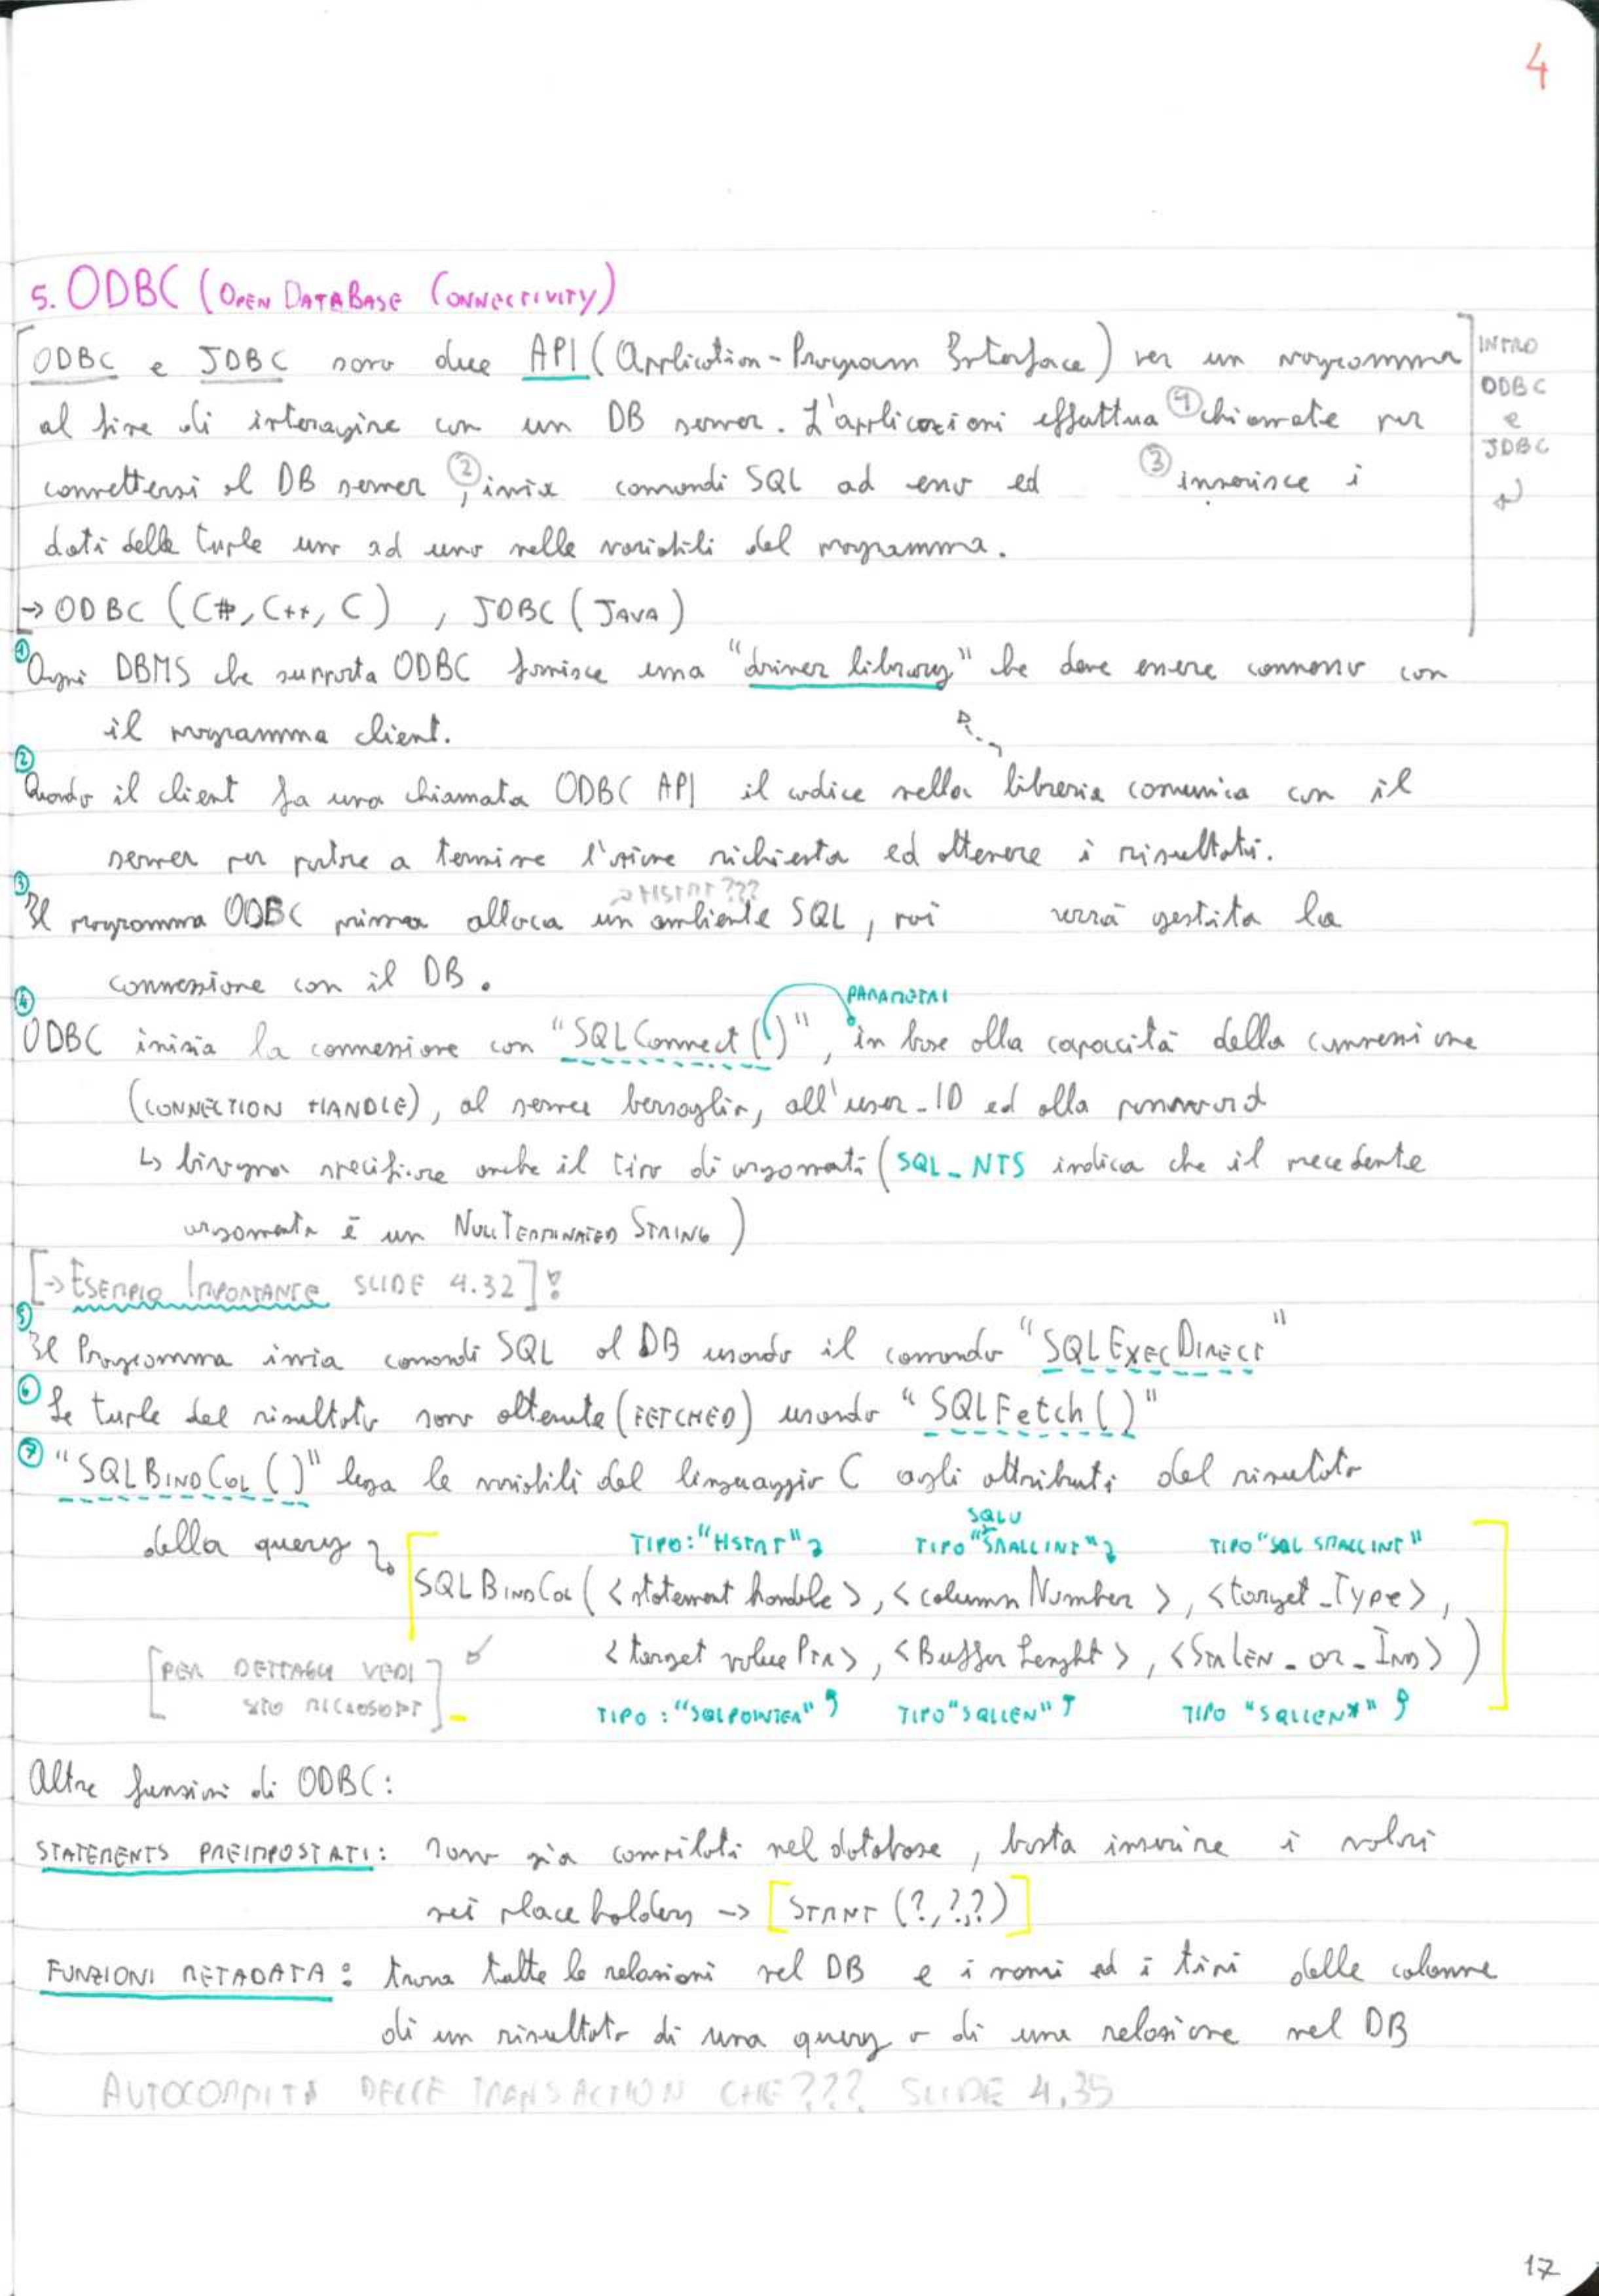 4
5. ODBC (OPEN DATABASE CONNECTIVITY)
ODBC e JDBC sono due API (Application-Program Interface) per un programma
INTRO
ODBC
e
JDBC
al fine di interagire con un DB server. L'applicazioni effettua ① chiamate per
connettersi al DB server ②, invia comandi SQL ad esso ed ③ inserisce i
dati delle tuple uno ad uno nelle variabili del programma.
→ ODBC (C#, C++, C) , JDBC (JAVA)
① Ogni DBMS che supporta ODBC fornisce una "driver library" che deve essere connesso con
il programma client.
② Quando il client fa una chiamata ODBC API il codice nella libreria comunica con il
server per portare a termine l'azione richiesta ed ottenere i risultati.
→ HSTMT???
③ Il programma ODBC prima alloca un ambiente SQL, poi verrà gestita la
connessione con il DB.
PARAMETRI
④ ODBC inizia la connessione con "SQLConnect()", in base alla capacità della connessione
(CONNECTION HANDLE), al server bersaglio, all'user-ID ed alla password
↳ bisogna specificare anche il tipo di argomenti (SQL_NTS indica che il precedente
argomento è un NULL TERMINATED STRING)
[→ ESEMPIO IMPORTANTE SLIDE 4.32]!
⑤ Il Programma invia comandi SQL al DB usando il comando "SQLEXECDIRECT"
⑥ Le tuple del risultato sono ottenute (FETCHED) usando "SQLFetch()"
⑦ "SQLBINDCOL()" lega le variabili del linguaggio C agli attributi del risultato
della query
TIPO: "HSTMT" TIPO "SQLU SMALLINT" TIPO "SQL SMALLINT"
SQLBINDCOL (<statement handle>, <column Number>, <target_Type>,
<target value PTR>, <Buffer Lenght>, <STRLEN_OR_IND>)
TIPO: "SQLPOINTER" TIPO "SQLLEN" TIPO "SQLLEN*"
[PER DETTAGLI VEDI
SITO MICROSOFT]
Altre funzioni di ODBC:
STATEMENTS PREIMPOSTATI: sono già compilati nel database, basta inserire i valori
nei placeholders → [STMT (?,?,?)]
FUNZIONI METADATA: trova tutte le relazioni nel DB e i nomi ed i tipi delle colonne
di un risultato di una query o di una relazione nel DB
AUTOCOMMITS DELLE TRANSACTION CHE??? SLIDE 4.35
17